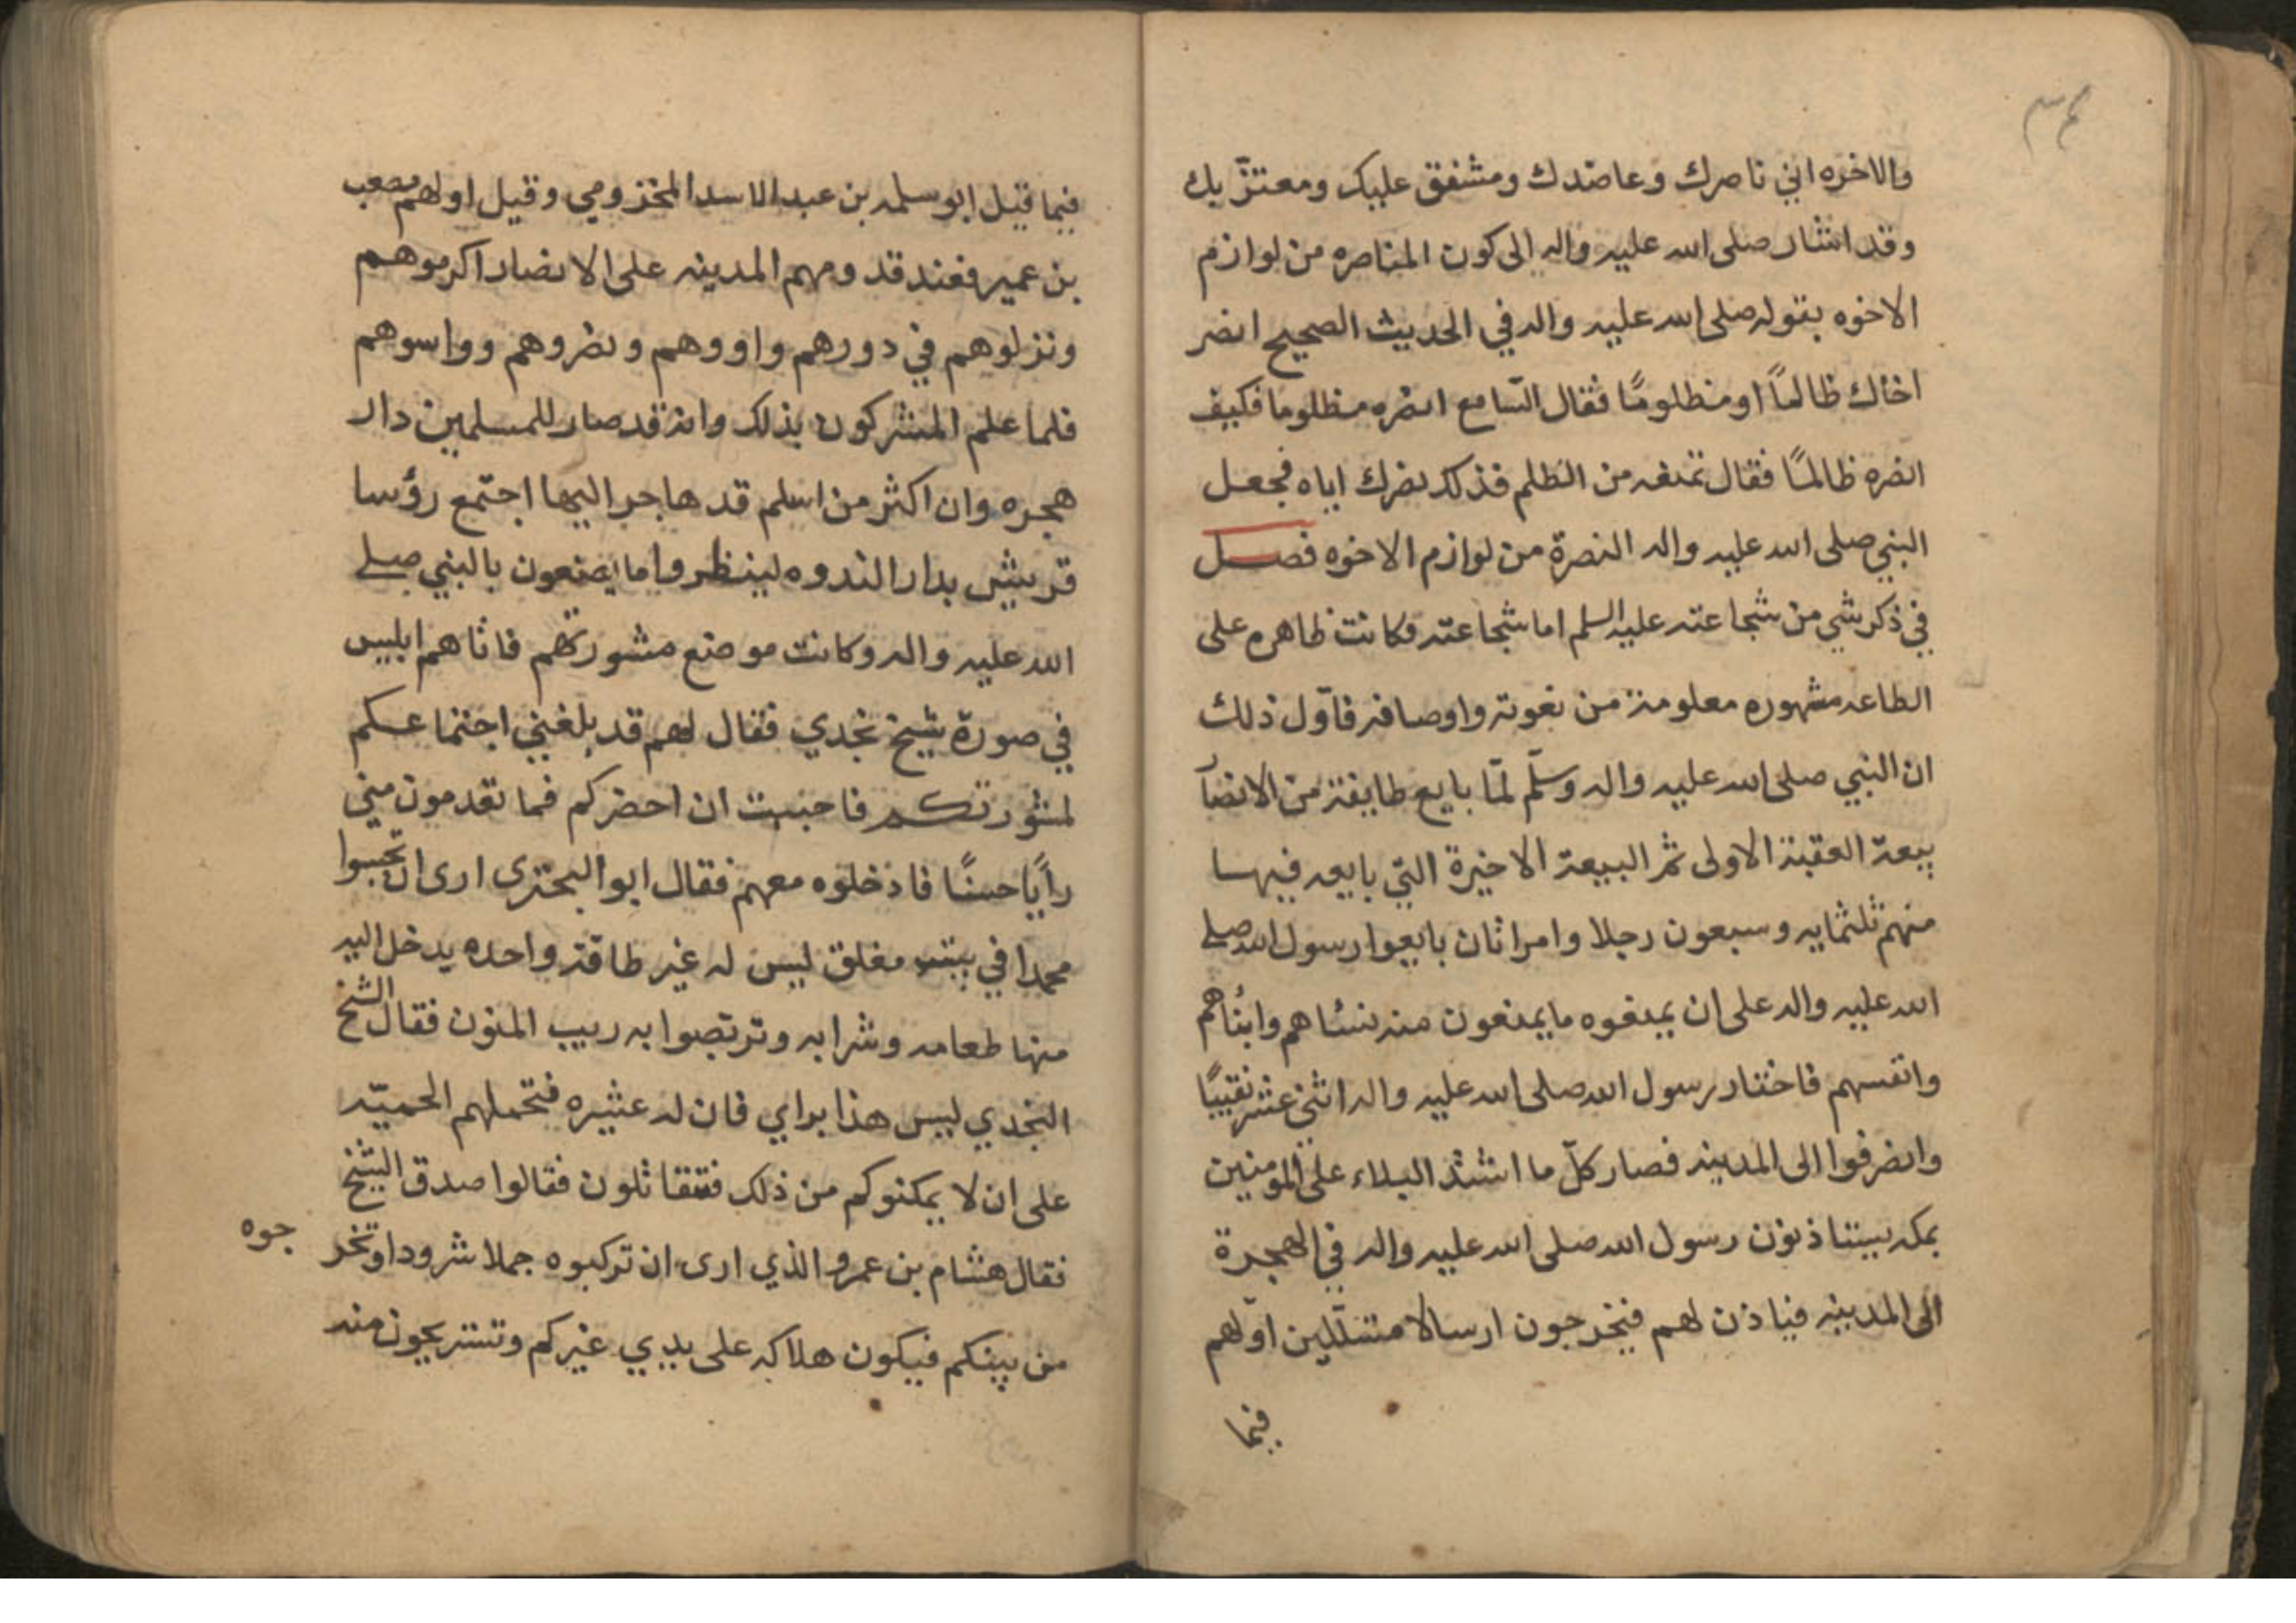 والاخره اني ناصرك وعاضدك ومشفق عليك ومعتزّ بك
وقد اشار صلى الله عليه واله الى كون المناصره من لوازم
الاخوه بقوله صلى الله عليه واله في الحديث الصحيح انصر
اخاك ظالمًا او مظلومًا فقال السّامع انصره مظلوما فكيف
انصره ظالمًا فقال تمنعه من الظلم فذلك نصرك اياه فجعل
النبي صلى الله عليه واله النصرة من لوازم الاخوه فصل
في ذكر شي من شجاعته عليه السلم اما شجاعته فكانت ظاهره على
الطاعه مشهوره معلومة من نعوته واوصافه فاوّل ذلك
ان النبي صلى الله عليه واله وسلّم لمّا بايع طايفة من الانصار
بيعة العقبة الاولى ثم البيعة الاخيرة التي بايعه فيها
منهم ثلثمايه وسبعون رجلا وامراتان بايعوا رسول الله صلى
الله عليه واله على ان يمنعوه ما يمنعون منه نساهم وابناهم
وانفسهم فاختار رسول الله صلى الله عليه واله اثني عشر نقيبًا
وانصرفوا الى المدينه فصار كلّ ما اشتد البلاء على المومنين
بمكه يستاذنون رسول الله صلى الله عليه واله في الهجرة
الى المدينه فياذن لهم فيخرجون ارسالا متسلّلين اوّلهم
فيما
فيما قيل ابو سلمه بن عبد الاسد المخزومي وقيل اولهم مصعب
بن عمير فعند قدومهم المدينه على الانصار اكرموهم
ونزلوهم في دورهم واووهم ونصروهم وواسوهم
فلما علم المشركون بذلك وانه قد صار للمسلمين دار
هجره وان اكثر من اسلم قد هاجر اليها اجتمع رؤسا
قريش بدار الندوه لينظروا ما يصنعون بالنبي صلى
الله عليه واله وكانت موضع مشورتهم فاتاهم ابليس
في صورة شيخ نجدي فقال لهم قد بلغني اجتماعكم
لمشورتكم فاحببت ان احضركم فما تعدمون مني
رأيًا حسنًا فادخلوه معهم فقال ابو البحترى ارى ان تحبسوا
محمدا في بيت مغلق ليس له غير طاقة واحده يدخل اليه
منها طعامه وشرابه وتربّصوا به ريب المنون فقال الشيخ
النجدي ليس هذا براي فان له عشيره فتحملهم الحميّه
على ان لا يمكنوكم من ذلك فتتقاتلون فقالوا صدق الشيخ
فقال هشام بن عمرو الذي ارى ان تركبوه جملا شرودا وتخر
جوه
من بينكم فيكون هلاكه على يدي غيركم وتستريحون منه